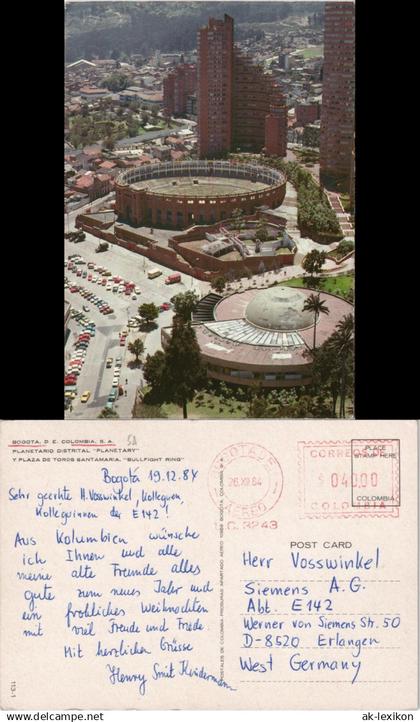 BOGOTA, D. E. COLOMBIA, S.A.
SA
PLANETARIO DISTRITAL "PLANETARY"
Y PLAZA DE TOROS SANTAMARIA. "BULLFIGHT RING"
Bogotá 19.12.84
Sehr geehrte H. Vosswinkel, Kollegen,
Kolleginnen der E142!
Aus Kolumbien wünsche
ich Ihnen und alle
meine alte Freunde alles
gute zum neues Jahr und
ein fröhliches Weihnachten
mit viel Freude und Friede.
Mit herzlichen Grüsse
Henry Smit
113-1
BOGOTA D.E.
26.XII.84
AEREO
C. 3243
CORREOS DE
$ 040.00
COLOMBIA
PLACE
STAMP HERE
COLOMBIA
POST CARD
Herr Vosswinkel
Siemens A.G.
Abt. E142
Werner von Siemens Str. 50
D-8520 Erlangen
West Germany
© ak-lexikon